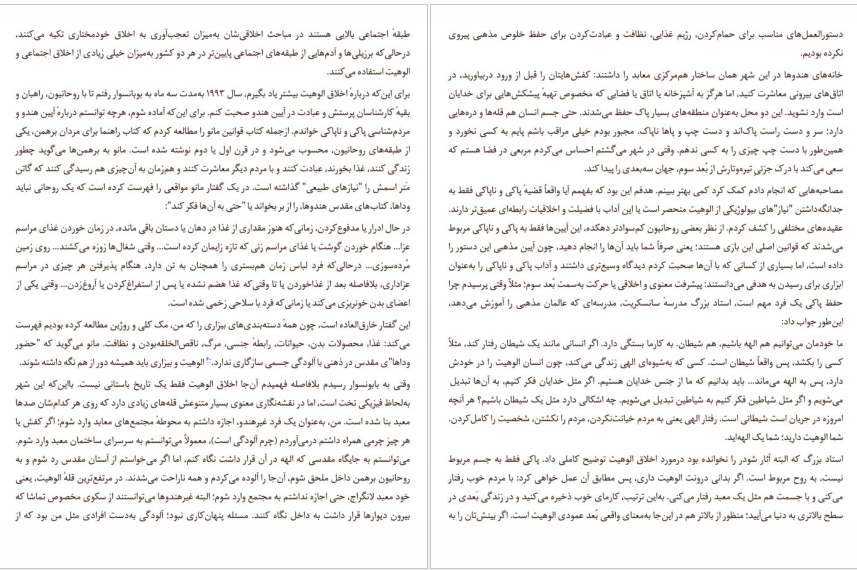 دستورالعمل‌های مناسب برای حمام‌کردن، رژیم غذایی، نظافت و عبادت‌کردن برای حفظ خلوص مذهبی پیروی
نکرده بودیم.
خانه‌های هندوها در این شهر همان ساختار هم‌مرکزی معابد را داشتند: کفش‌هایتان را قبل از ورود دربیاورید، در
اتاق‌های بیرونی معاشرت کنید، اما هرگز به آشپزخانه یا اتاق یا فضایی که مخصوص تهیهٔ پیشکش‌هایی برای خدایان
است وارد نشوید. این دو محل به‌عنوان منطقه‌های بسیار پاک حفظ می‌شدند. حتی جسم انسان هم قله‌ها و دره‌هایی
دارد؛ سر و دست راست پاک‌اند و دست چپ و پاها ناپاک. مجبور بودم خیلی مراقب باشم پایم به کسی نخورد و
همین‌طور با دست چپ چیزی را به کسی ندهم. وقتی در شهر می‌گشتم احساس می‌کردم مربعی در فضا هستم که
سعی می‌کند با درک جزئی تیره‌وتارش از بُعد سوم، جهان سه‌بعدی را پیدا کند.
مصاحبه‌هایی که انجام دادم کمک کرد کمی بهتر ببینم. هدفم این بود که بفهمم آیا واقعاً قضیهٔ پاکی و ناپاکی فقط به
جدانگه‌داشتن "نیاز"های بیولوژیکی از الوهیت منحصر است یا این آداب با فضیلت و اخلاقیات رابطه‌ای عمیق‌تر دارند.
عقیده‌های مختلفی را کشف کردم. از نظر بعضی روحانیون کم‌سوادتر دهکده، این آیین‌ها فقط به پاکی و ناپاکی مربوط
می‌شدند که قوانین اصلی این بازی هستند؛ یعنی صرفاً شما باید آن‌ها را انجام دهید، چون آیین مذهبی این دستور را
داده است، اما بسیاری از کسانی که با آن‌ها صحبت کردم دیدگاه وسیع‌تری داشتند و آداب پاکی و ناپاکی را به‌عنوان
ابزاری برای رسیدن به هدفی می‌دانستند: پیشرفت معنوی و اخلاقی یا حرکت به‌سمت بُعد سوم؛ مثلاً وقتی پرسیدم چرا
حفظ پاکی یک فرد مهم است، استاد بزرگ مدرسهٔ سانسکریت، مدرسه‌ای که عالمان مذهبی را آموزش می‌دهد،
این‌طور جواب داد:
ما خودمان می‌توانیم هم الهه باشیم، هم شیطان. به کارما بستگی دارد. اگر انسانی مانند یک شیطان رفتار کند، مثلاً
کسی را بکشد، پس واقعاً شیطان است. کسی که به‌شیوه‌ای الهی زندگی می‌کند، چون انسان الوهیت را در خودش
دارد، پس به الهه می‌ماند... باید بدانیم که ما از جنس خدایان هستیم. اگر مثل خدایان فکر کنیم، به آن‌ها تبدیل
می‌شویم و اگر مثل شیاطین فکر کنیم به شیاطین تبدیل می‌شویم. چه اشکالی دارد مثل یک شیطان باشیم؟ هر آنچه
امروزه در جریان است شیطانی است. رفتار الهی یعنی به مردم خیانت‌نکردن، مردم را نکشتن، شخصیت را کامل‌کردن.
شما الوهیت دارید؛ شما یک الهه‌اید.
استاد بزرگ که البته آثار شودر را نخوانده بود درمورد اخلاق الوهیت توضیح کاملی داد. پاکی فقط به جسم مربوط
نیست. به روح مربوط است. اگر بدانی درونت الوهیت داری، پس مطابق آن عمل خواهی کرد: با مردم خوب رفتار
می‌کنی و با جسمت هم مثل یک معبد رفتار می‌کنی. به‌این ترتیب، کارمای خوب ذخیره می‌کنید و در زندگی بَعدی در
سطح بالاتری به دنیا می‌آیید؛ منظور از بالاتر هم در این‌جا به‌معنای واقعی بُعد عمودی الوهیت است. اگر بینش‌تان را به
طبقهٔ اجتماعی بالایی هستند در مباحث اخلاقی‌شان به‌میزان تعجب‌آوری به اخلاق خودمختاری تکیه می‌کنند،
درحالی‌که برزیلی‌ها و آدم‌هایی از طبقه‌های اجتماعی پایین‌تر در هر دو کشور به‌میزان خیلی زیادی از اخلاق اجتماعی و
الوهیت استفاده می‌کنند.
برای این‌که دربارهٔ اخلاق الوهیت بیشتر یاد بگیرم، سال ۱۹۹۳ به‌مدت سه ماه به بوبانسوار رفتم تا با روحانیون، راهبان و
بقیهٔ کارشناسان پرستش و عبادت در آیین هندو صحبت کنم. برای این‌که آماده شوم، هرچه توانستم دربارهٔ آیین هندو و
مردم‌شناسی پاکی و ناپاکی خواندم، ازجمله کتاب قوانین مانو را مطالعه کردم که کتاب راهنما برای مردان برهمن، یکی
از طبقه‌های روحانیون، محسوب می‌شود و در قرن اول یا دوم نوشته شده است. مانو به برهمن‌ها می‌گوید چطور
زندگی کنند، غذا بخورند، عبادت کنند و با مردم دیگر معاشرت کنند و هم‌زمان به آن‌چیزی هم رسیدگی کنند که گاتن
مَتِر اسمش را "نیازهای طبیعی" گذاشته است. در یک گفتار مانو مواقعی را فهرست کرده است که یک روحانی نباید
وداها، کتاب‌های مقدس هندوها، را از بر بخواند یا "حتی به آن‌ها فکر کند":
در حال ادرار یا مدفوع‌کردن، زمانی‌که هنوز مقداری از غذا در دهان یا دستان باقی مانده، در زمان خوردن غذای مراسم
عزا... هنگام خوردن گوشت یا غذای مراسم زنی که تازه زایمان کرده است... وقتی شغال‌ها زوزه می‌کشند... روی زمین
مُرده‌سوزی... درحالی‌که فرد لباس زمان هم‌بستری را همچنان به تن دارد، هنگام پذیرفتن هر چیزی در مراسم
عزاداری، بلافاصله بعد از غذاخوردن یا تا وقتی‌که غذا هضم نشده یا پس از استفراغ‌کردن یا آروغ‌زدن... وقتی یکی از
اعضای بدن خونریزی می‌کند یا زمانی‌که فرد با سلاحی زخمی شده است.
این گفتار خارق‌العاده است، چون همهٔ دسته‌بندی‌های بیزاری را که من، مک کلی و روژین مطالعه کرده بودیم فهرست
می‌کند: غذا، محصولات بدن، حیوانات، رابطهٔ جنسی، مرگ، ناقص‌الخلقه‌بودن و نظافت. مانو می‌گوید که "حضور
وداها"ی مقدس در ذهنی با آلودگی جسمی سازگاری ندارد. الوهیت و بیزاری باید همیشه دور از هم نگه داشته شوند.
وقتی به بابونسوار رسیدم بلافاصله فهمیدم آن‌جا اخلاق الوهیت فقط یک تاریخ باستانی نیست. بااین‌که این شهر
به‌لحاظ فیزیکی تخت است، اما در نقشه‌نگاری معنوی بسیار متنوعش قله‌های زیادی دارد که روی هر کدام‌شان صدها
معبد بنا شده است. من، به‌عنوان یک فرد غیرهندو، اجازه داشتم به محوطهٔ مجتمع‌های معابد وارد شوم؛ اگر کفش یا
هر چیز چرمی همراه داشتم درمی‌آوردم (چرم آلودگی است)، معمولاً می‌توانستم به سرسرای ساختمان معبد وارد شوم.
می‌توانستم به جایگاه مقدسی که الهه در آن قرار داشت نگاه کنم، اما اگر می‌خواستم از آستان مقدس رد شوم و به
روحانیون برهمن داخل ملحق شوم، آن‌جا را آلوده می‌کردم و همه ناراحت می‌شدند. در مرتفع‌ترین قلهٔ الوهیت، یعنی
خود معبد لانگراج، حتی اجازه نداشتم به مجتمع وارد شوم؛ البته غیرهندوها می‌توانستند از سکوی مخصوص تماشا که
بیرون دیوارها قرار داشت به داخل نگاه کنند. مسئله پنهان‌کاری نبود؛ آلودگی به‌دست افرادی مثل من بود که از